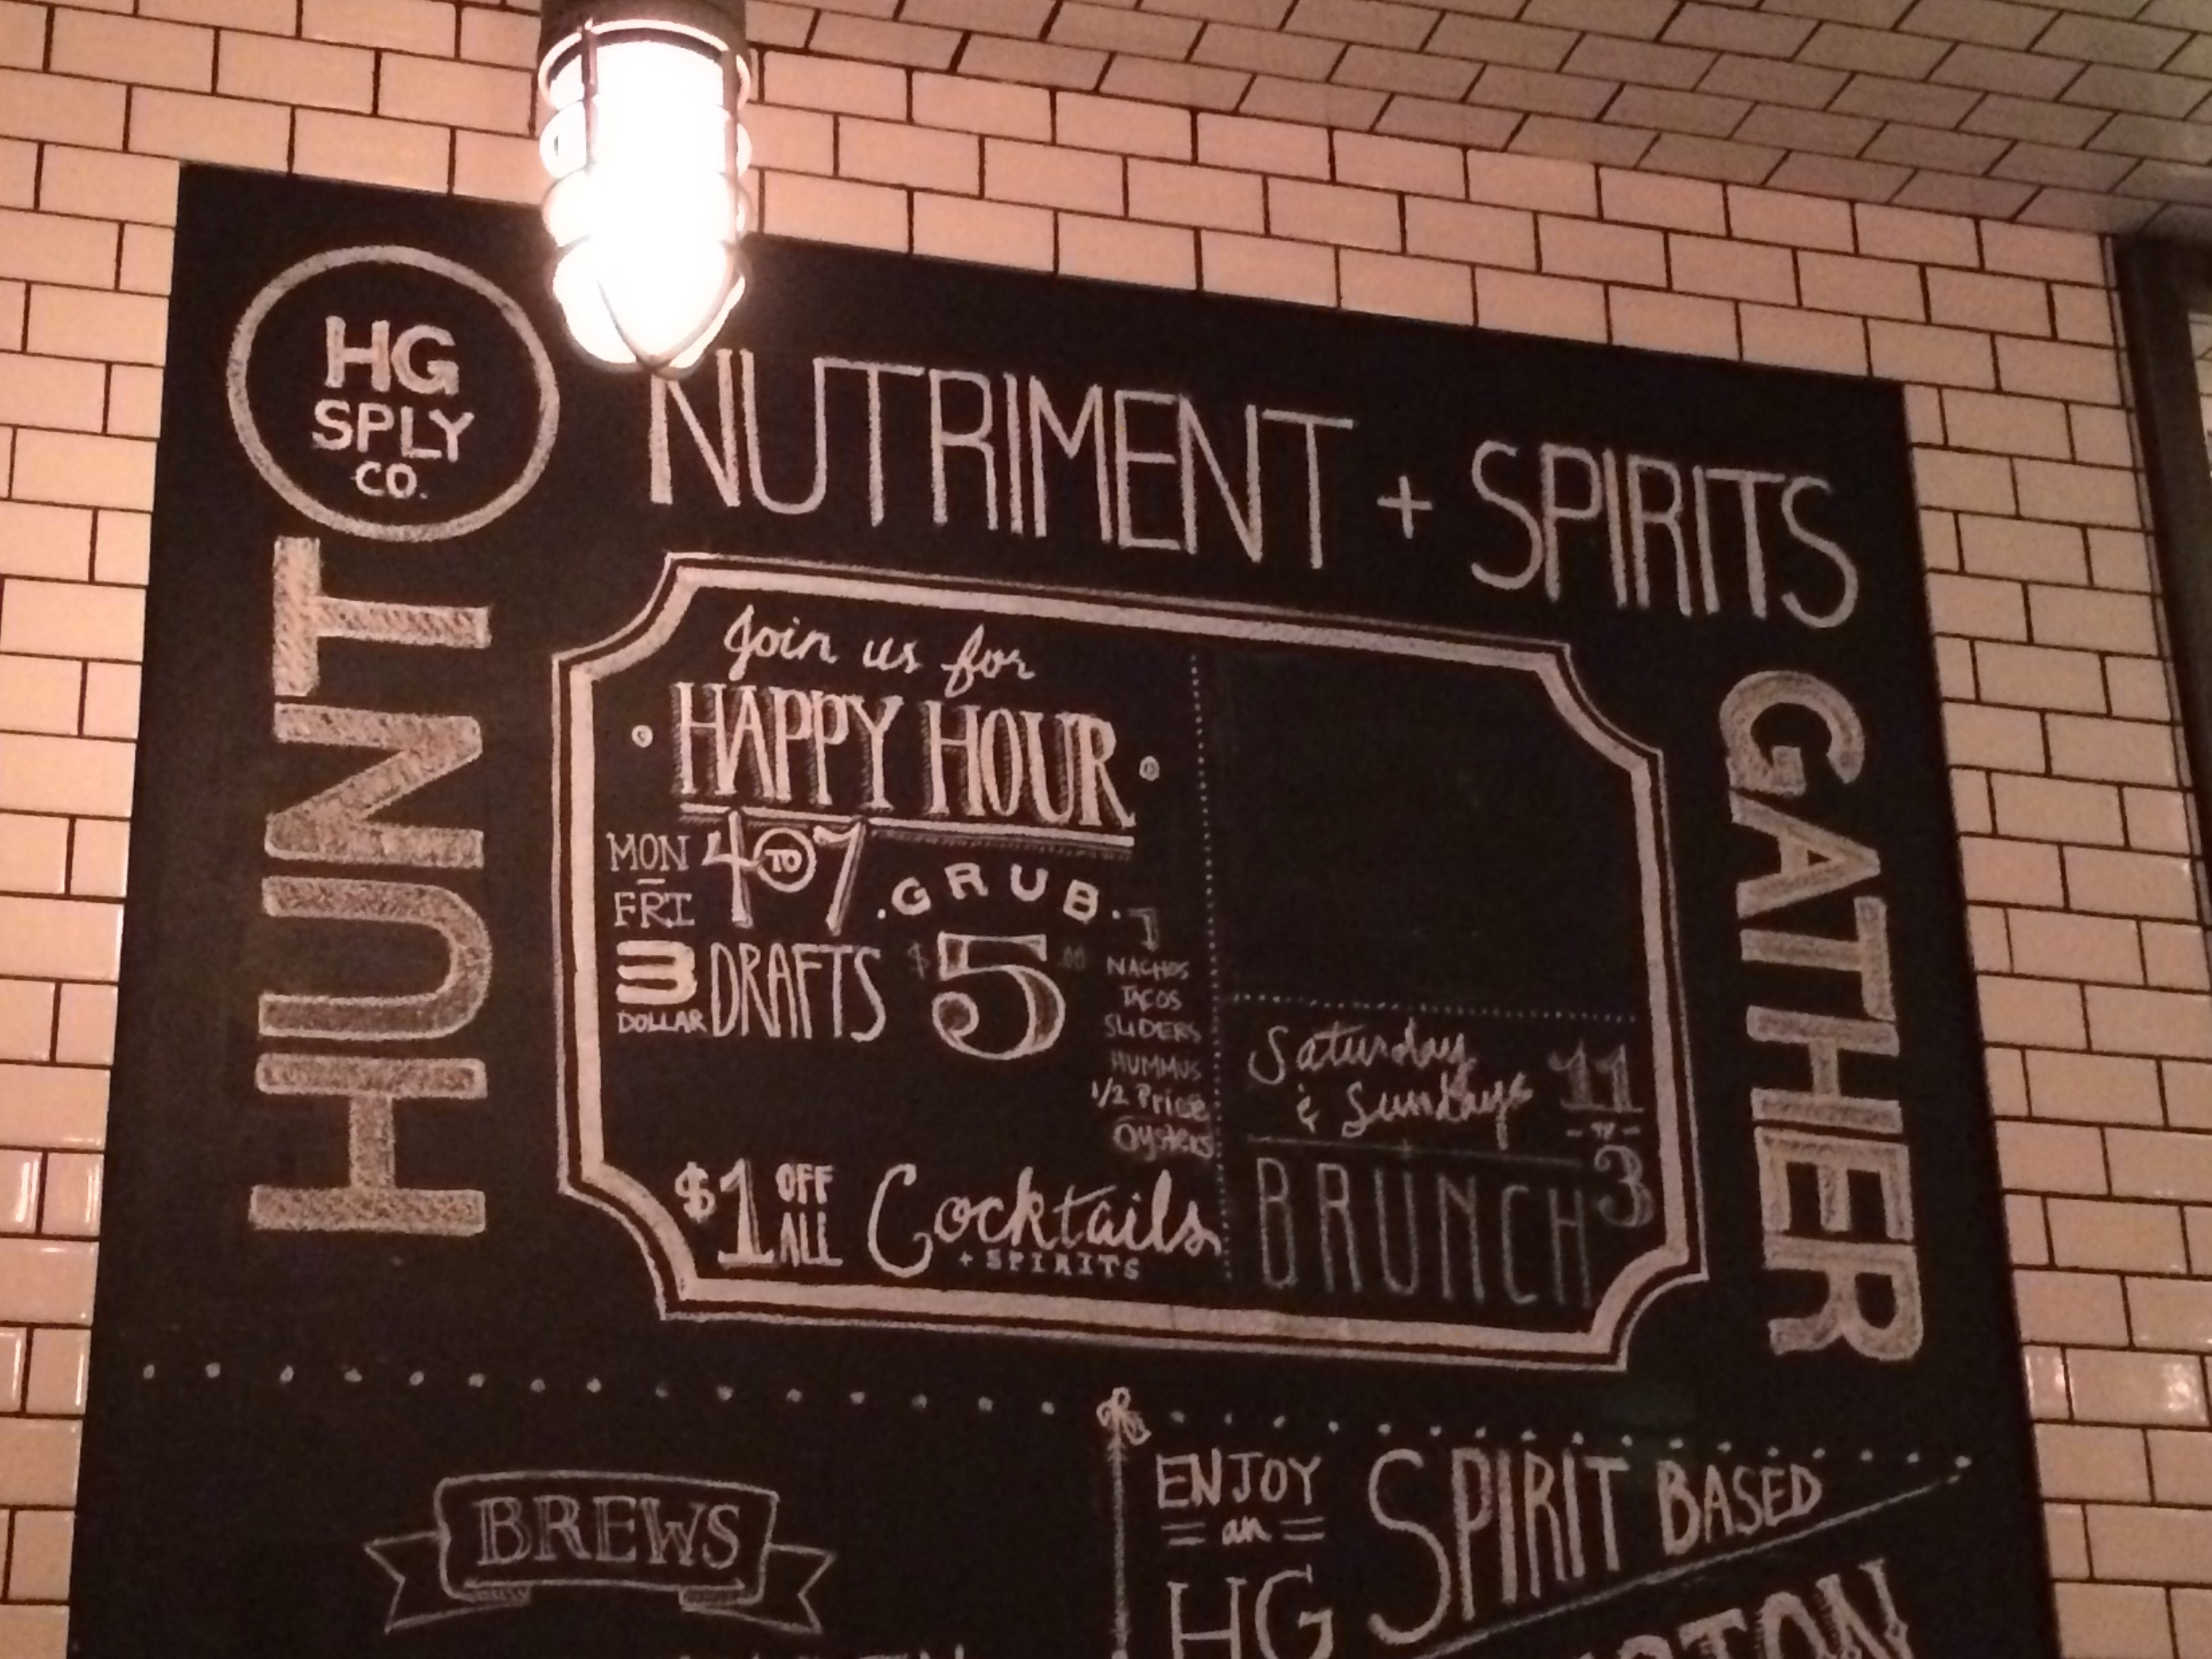 HG
SPLY
CO.
NUTRIMENT + SPIRITS
HUNT
GATHER
Join us for
HAPPY HOUR
MON - FRI
4 TO 7
3 DOLLAR DRAFTS
GRUB
$5.00
NACHOS
TACOS
SLIDERS
HUMMUS
1/2 Price
Oysters
$1 OFF ALL Cocktails
+ SPIRITS
Saturday
& Sundays
11
3
BRUNCH
BREWS
ENJOY
an
HG
SPIRIT BASED